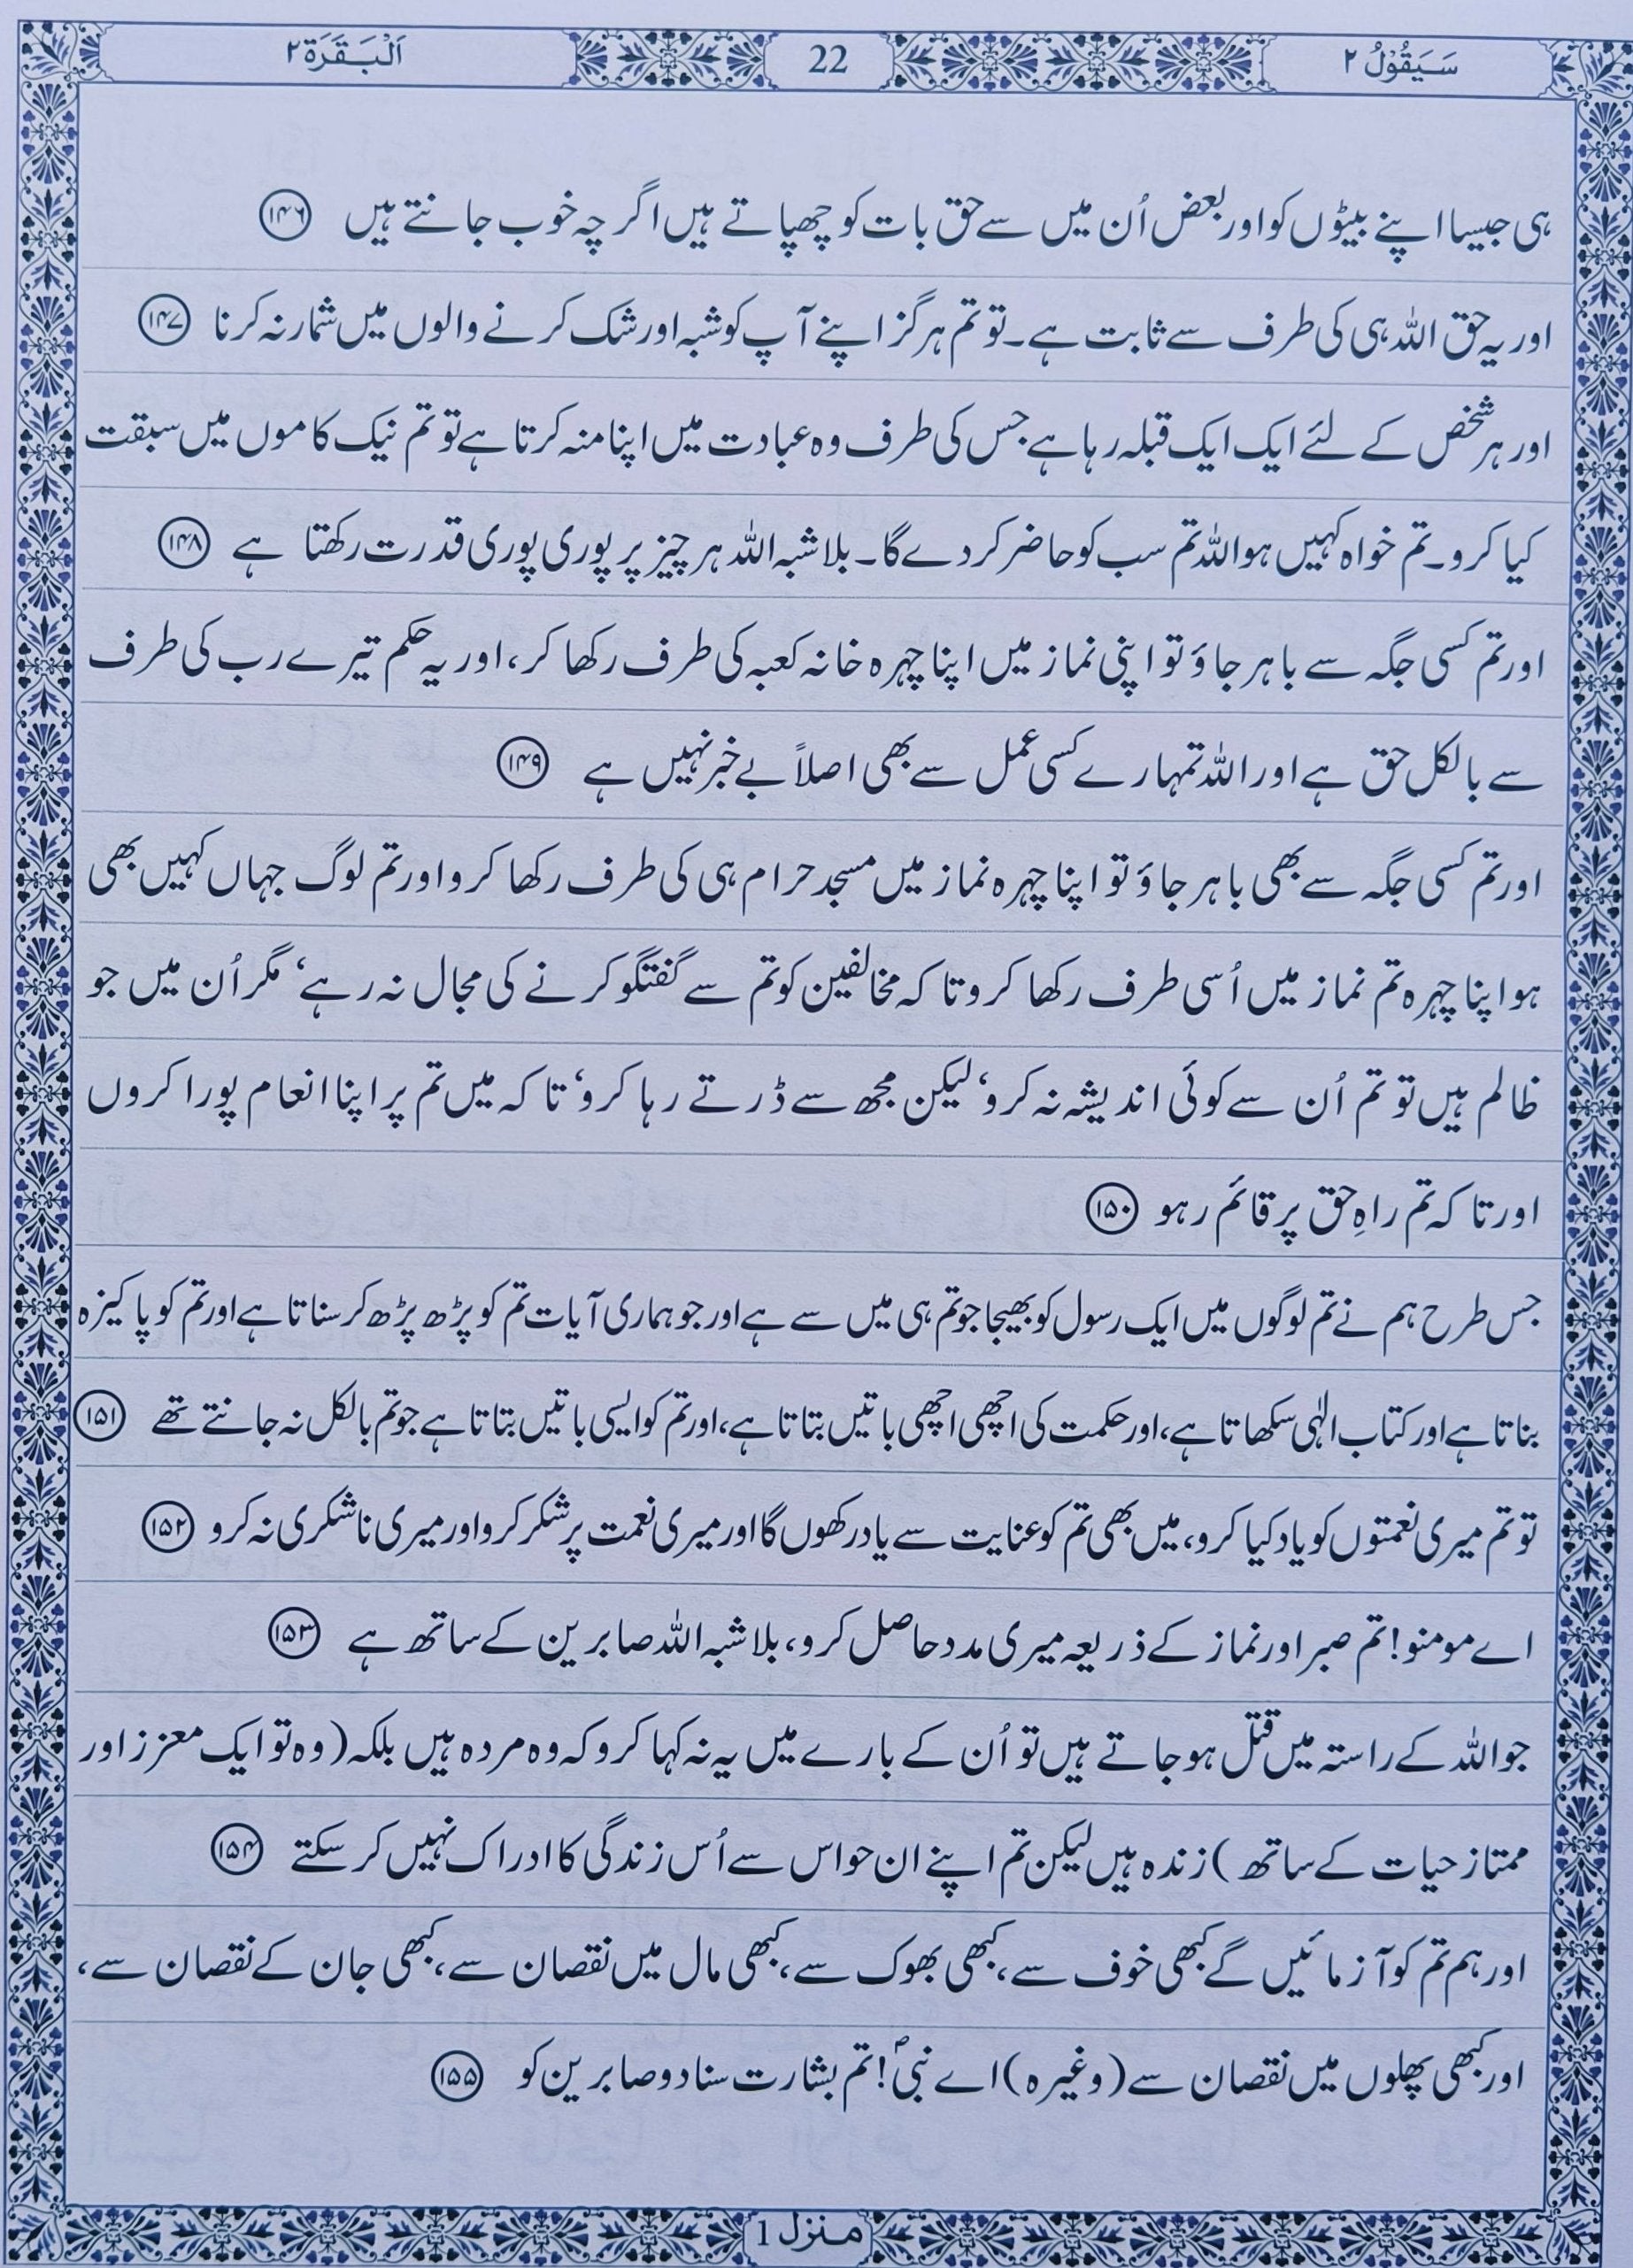 سَيَقُوْلُ ۲
22
اَلْبَقَرَة ۲
ہی جیسا اپنے بیٹوں کو اور بعض اُن میں سے حق بات کو چھپاتے ہیں اگر چہ خوب جانتے ہیں ۱۴۶
اور یہ حق اللہ ہی کی طرف سے ثابت ہے۔ تو تم ہرگز اپنے آپ کو شبہ اور شک کرنے والوں میں شمار نہ کرنا ۱۴۷
اور ہر شخص کے لئے ایک ایک قبلہ رہا ہے جس کی طرف وہ عبادت میں اپنا منہ کرتا ہے تو تم نیک کاموں میں سبقت
کیا کرو۔ تم خواہ کہیں ہو اللہ تم سب کو حاضر کر دے گا۔ بلاشبہ اللہ ہر چیز پر پوری پوری قدرت رکھتا ہے ۱۴۸
اور تم کسی جگہ سے باہر جاؤ تو اپنی نماز میں اپنا چہرہ خانہ کعبہ کی طرف رکھا کر، اور یہ حکم تیرے رب کی طرف
سے بالکل حق ہے اور اللہ تمہارے کسی عمل سے بھی اصلاً بے خبر نہیں ہے ۱۴۹
اور تم کسی جگہ سے بھی باہر جاؤ تو اپنا چہرہ نماز میں مسجد حرام ہی کی طرف رکھا کرو اور تم لوگ جہاں کہیں بھی
ہو اپنا چہرہ تم نماز میں اُسی طرف رکھا کرو تا کہ مخالفین کو تم سے گفتگو کرنے کی مجال نہ رہے‘ مگر اُن میں جو
ظالم ہیں تو تم اُن سے کوئی اندیشہ نہ کرو‘ لیکن مجھ سے ڈرتے رہا کرو‘ تا کہ میں تم پر اپنا انعام پورا کروں
اور تا کہ تم راہِ حق پر قائم رہو ۱۵۰
جس طرح ہم نے تم لوگوں میں ایک رسول کو بھیجا جو تم ہی میں سے ہے اور جو ہماری آیات تم کو پڑھ پڑھ کر سناتا ہے اور تم کو پاکیزہ
بناتا ہے اور کتاب الٰہی سکھاتا ہے، اور حکمت کی اچھی اچھی باتیں بتاتا ہے، اور تم کو ایسی باتیں بتاتا ہے جو تم بالکل نہ جانتے تھے ۱۵۱
تو تم میری نعمتوں کو یاد کیا کرو، میں بھی تم کو عنایت سے یاد رکھوں گا اور میری نعمت پر شکر کرو اور میری ناشکری نہ کرو ۱۵۲
اے مومنو! تم صبر اور نماز کے ذریعہ میری مدد حاصل کرو، بلاشبہ اللہ صابرین کے ساتھ ہے ۱۵۳
جو اللہ کے راستہ میں قتل ہو جاتے ہیں تو اُن کے بارے میں یہ نہ کہا کرو کہ وہ مردہ ہیں بلکہ (وہ تو ایک معزز اور
ممتاز حیات کے ساتھ) زندہ ہیں لیکن تم اپنے ان حواس سے اُس زندگی کا ادراک نہیں کر سکتے ۱۵۴
اور ہم تم کو آزمائیں گے کبھی خوف سے، کبھی بھوک سے، کبھی مال میں نقصان سے، کبھی جان کے نقصان سے،
اور کبھی پھلوں میں نقصان سے (وغیرہ) اے نبیؐ! تم بشارت سنا دو صابرین کو ۱۵۵
منزل 1